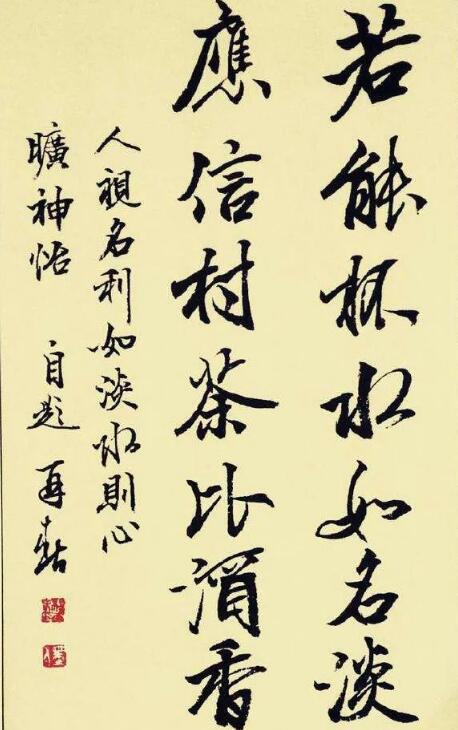 若能杯水如名淡
應信村茶比酒香
人視名利如淡水則心
曠神怡 自題 再